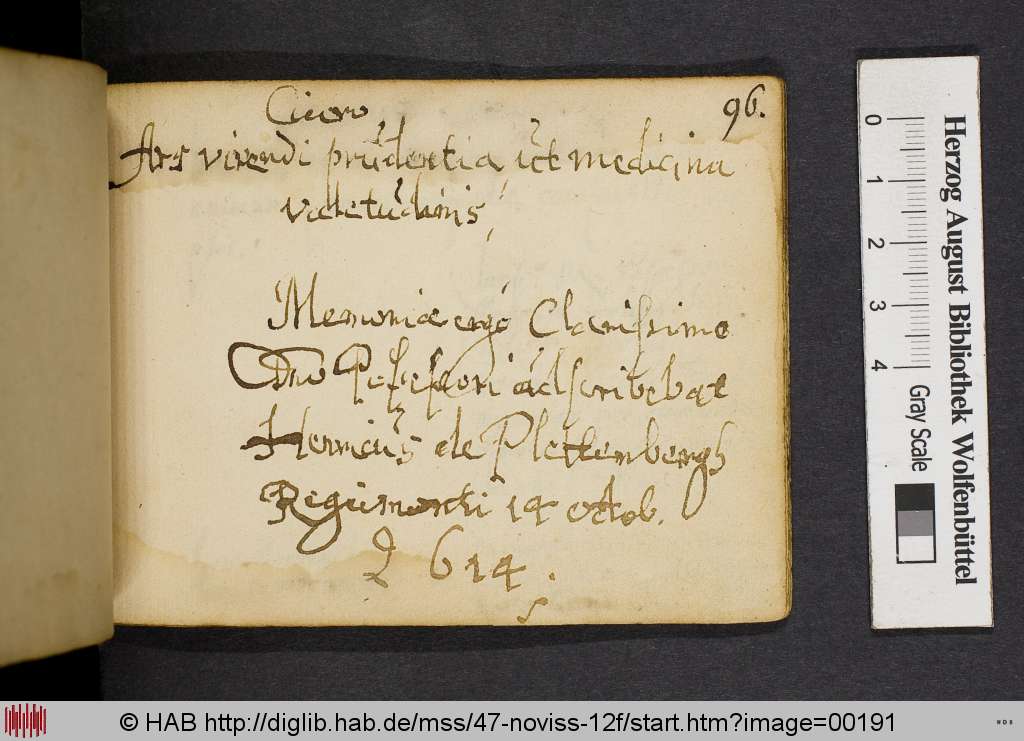 96.
Cicero
Ars vivendi prudentia ut medicina
valetudinis
Memoriae ergo Clarissimo
Dno Possessori adscribebat
Henricus de Plettenbergh
Regiimonti 14 octob.
1614.
0
1
2
3
4
Herzog August Bibliothek Wolfenbüttel
Gray Scale
© HAB http://diglib.hab.de/mss/47-noviss-12f/start.htm?image=00191